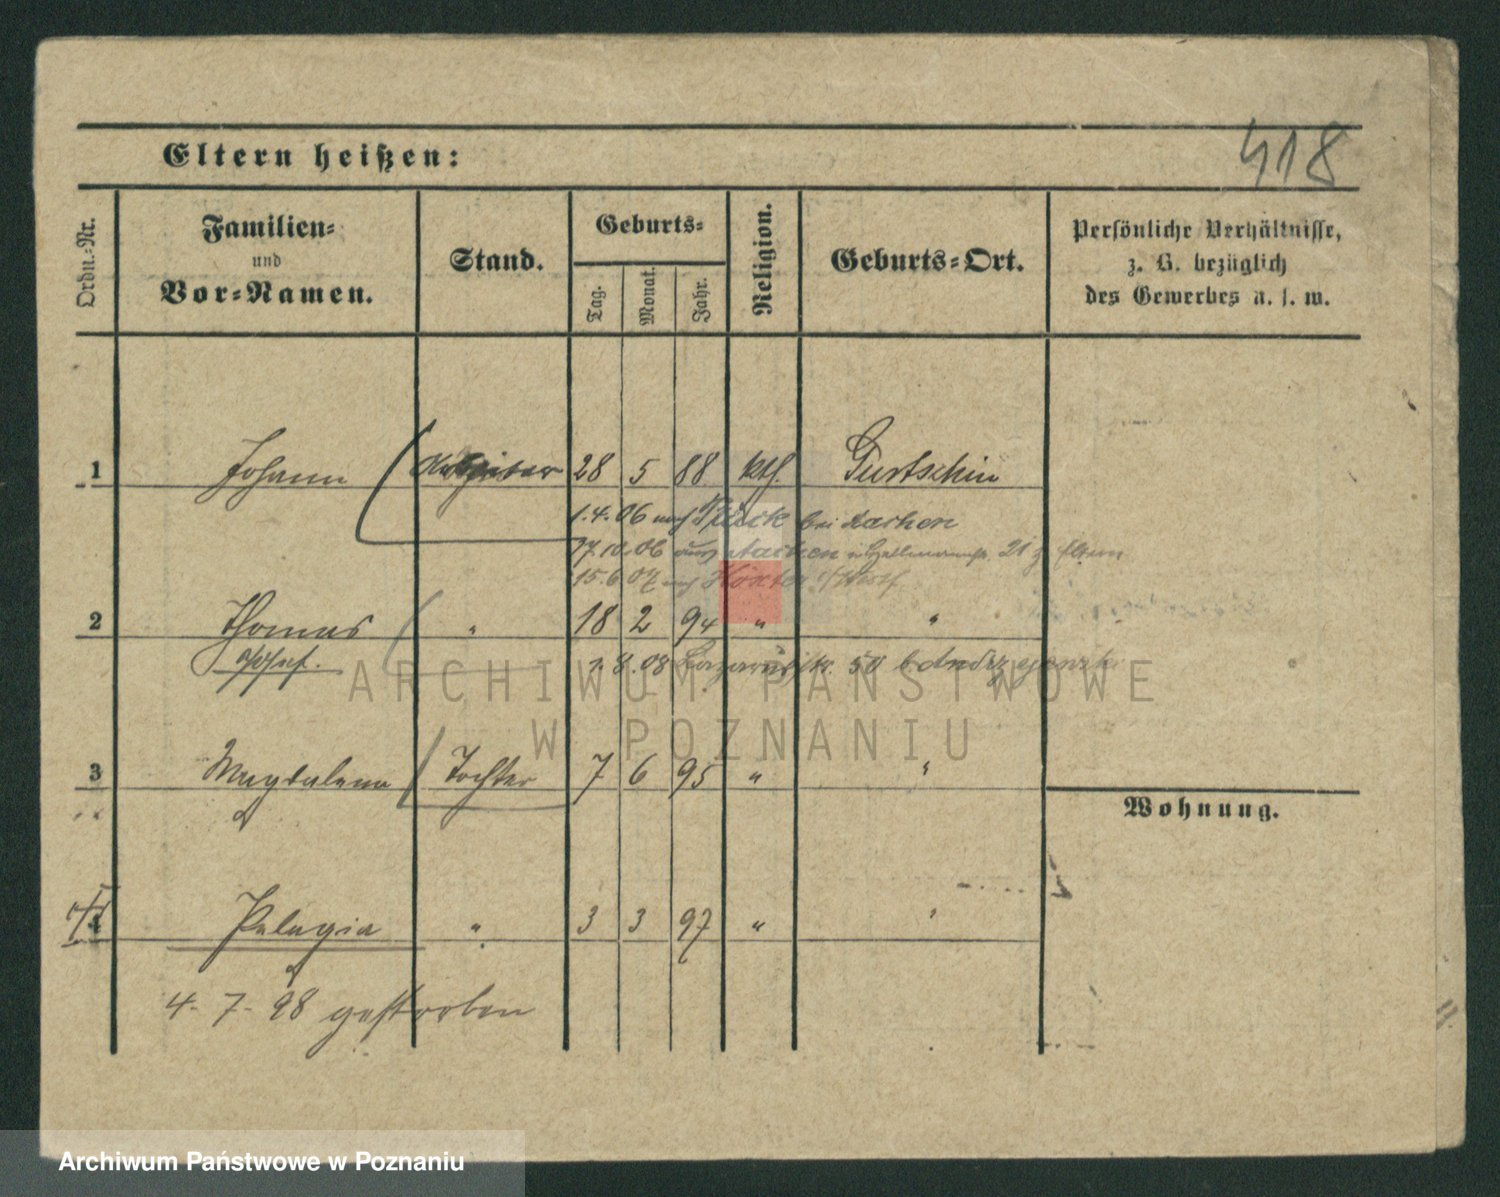 418
Eltern heißen:
Ordn.-Nr.
Familien-
und
Vor-Namen.
Stand.
Geburts-
Tag.
Monat.
Jahr.
Religion.
Geburts-Ort.
Persönliche Verhältnisse,
z. B. bezüglich
des Gewerbes u. s. w.
1 Johann Arbeiter 28 5 88 kth. Gurtschin
1.4.06 nach bei Aachen
17.10.06 aus Aachen 21 z. Eltern
15.6.07 nach Höxter i/Westf.
2 Thomas " 18 2 94 " "
Josef. 1.8.08 Lazarusstr. 50 b
ARCHIWUM PAŃSTWOWE
W POZNANIU
3 Magdalena Tochter 7 6 95 " "
Wohnung.
4 Pelagia " 3 3 97 " "
4. 7. 98 gestorben
Archiwum Państwowe w Poznaniu